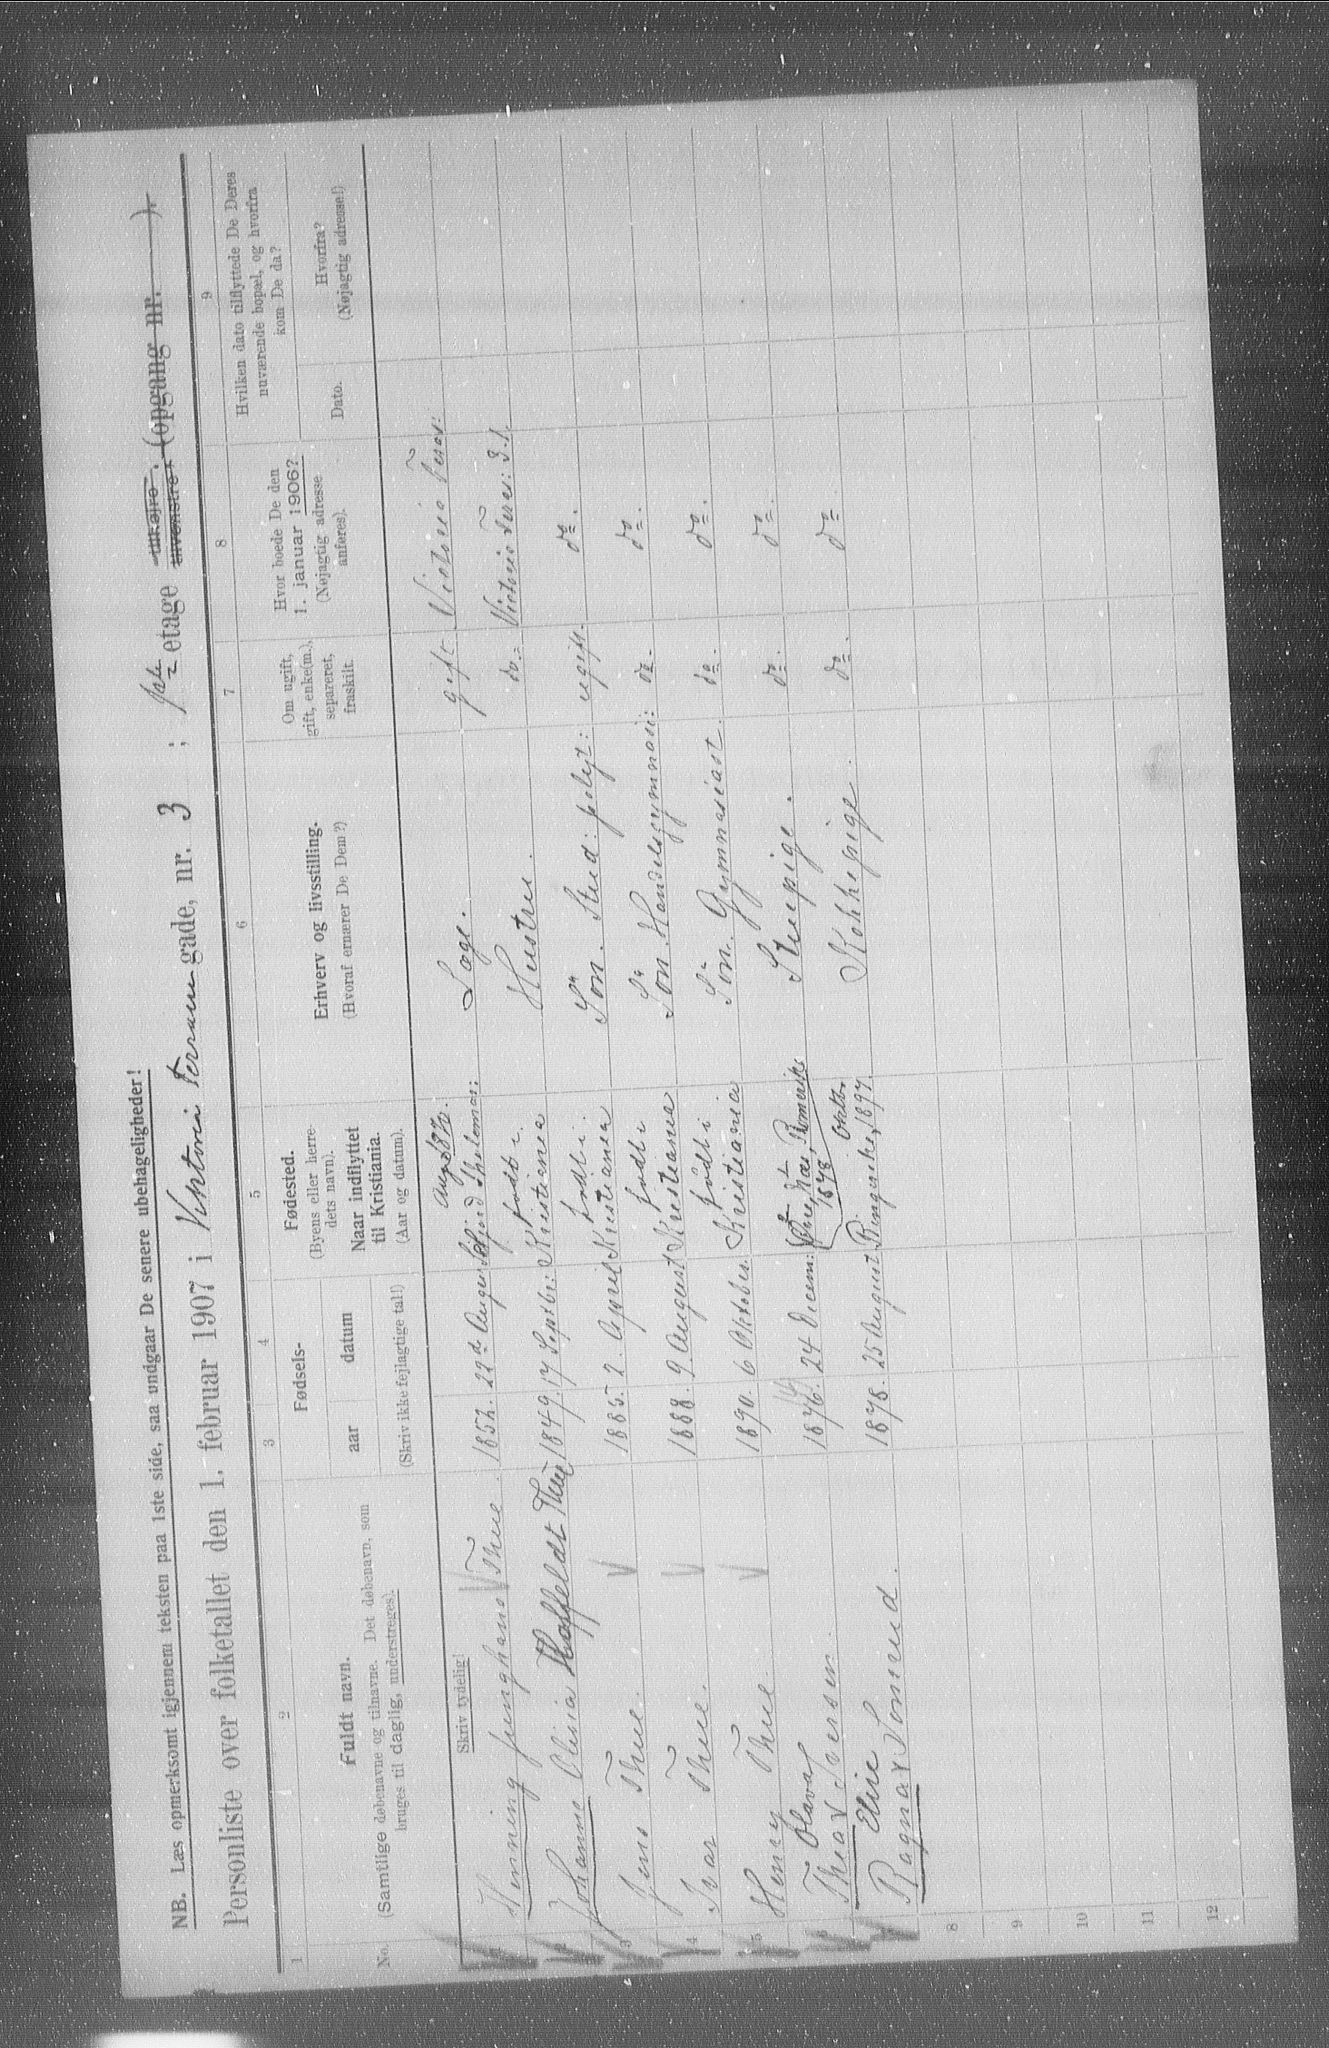 NB. Læs opmerksomt igjennem teksten paa 1ste side, saa undgaar De senere ubehageligheder!
Personliste over folketallet den 1. februar 1907 i Viktoria Terrasse gade, nr. 3 ; 1ste etage tilhøjre. tilvenstre. (opgang nr. ).
1 2 3 4 5 6 7 8 9
No.
Fuldt navn.
(Samtlige døbenavne og tilnavne. Det døbenavn, som
bruges til daglig, understreges).
Fødsels-
aar datum
(Skriv ikke fejlagtige tal!)
Fødested.
(Byens eller herre-
dets navn).
Naar indflyttet
til Kristiania.
(Aar og datum).
Erhverv og livsstilling.
(Hvoraf ernærer De Dem?)
Om ugift,
gift, enke(m.),
separeret,
fraskilt.
Hvor boede De den
1. januar 1906?
(Nøjagtig adresse
anføres).
Hvilken dato tilflyttede De Deres
nuværende bopæl, og hvorfra
kom De da?
Dato.
Hvorfra?
(Nøjagtig adresse!)
Skriv tydelig!
Aug 1870.
Henning Junghans Thue. 1852. 22d August Thelemar: Læge. gift. Victoria Teras:
født i
Johanne Olivia Hoffeldt Thue 1849. 17 Septbr: Kristiania Hustru. do. Victoria Teras: 3.1.
født i
3 Jens Thue. 1885. 2. April Kristiania Søn. Stud: polyt: ugift. do.
født i
4 Ivar Thue. 1888. 9 August Kristiania Søn. Handelsgymnasi: do. do.
født i
5 Henry Thue. 1890. 6 Oktober. Kristiania Søn. Gymnasiast. do. do.
Olava
Thea Iversen. 1876. 24 Decem: Næs, Romerike Stuepige. do. do.
1898 Oktbr.
Elise
Ragna Sonerud. 1878. 25 August Ringerike, 1897. Kokkepige. do. do.
8
9
10
11
12